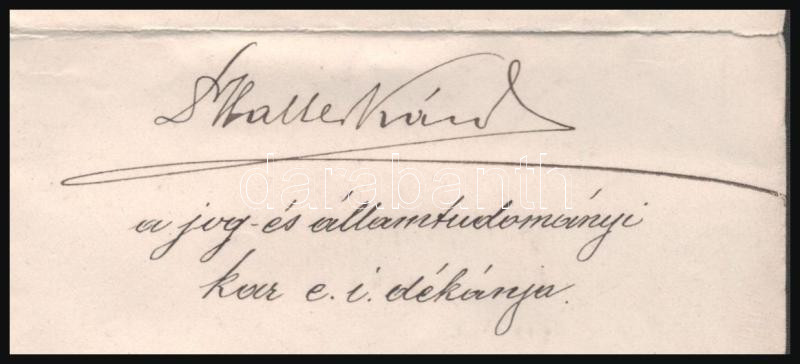 Dr Haller Károly
darabanth
a jog- és államtudományi
kar e. i. dékánja.